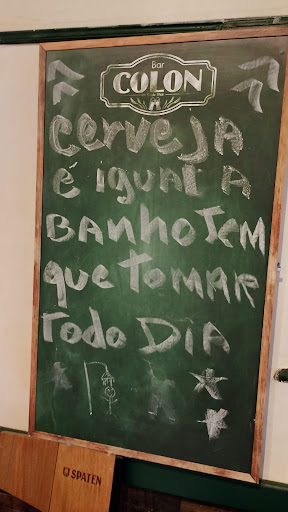 Bar
COLON
cerveja
é igual a
BANHO TEM
que TOMAR
TODO DIA
SPATEN